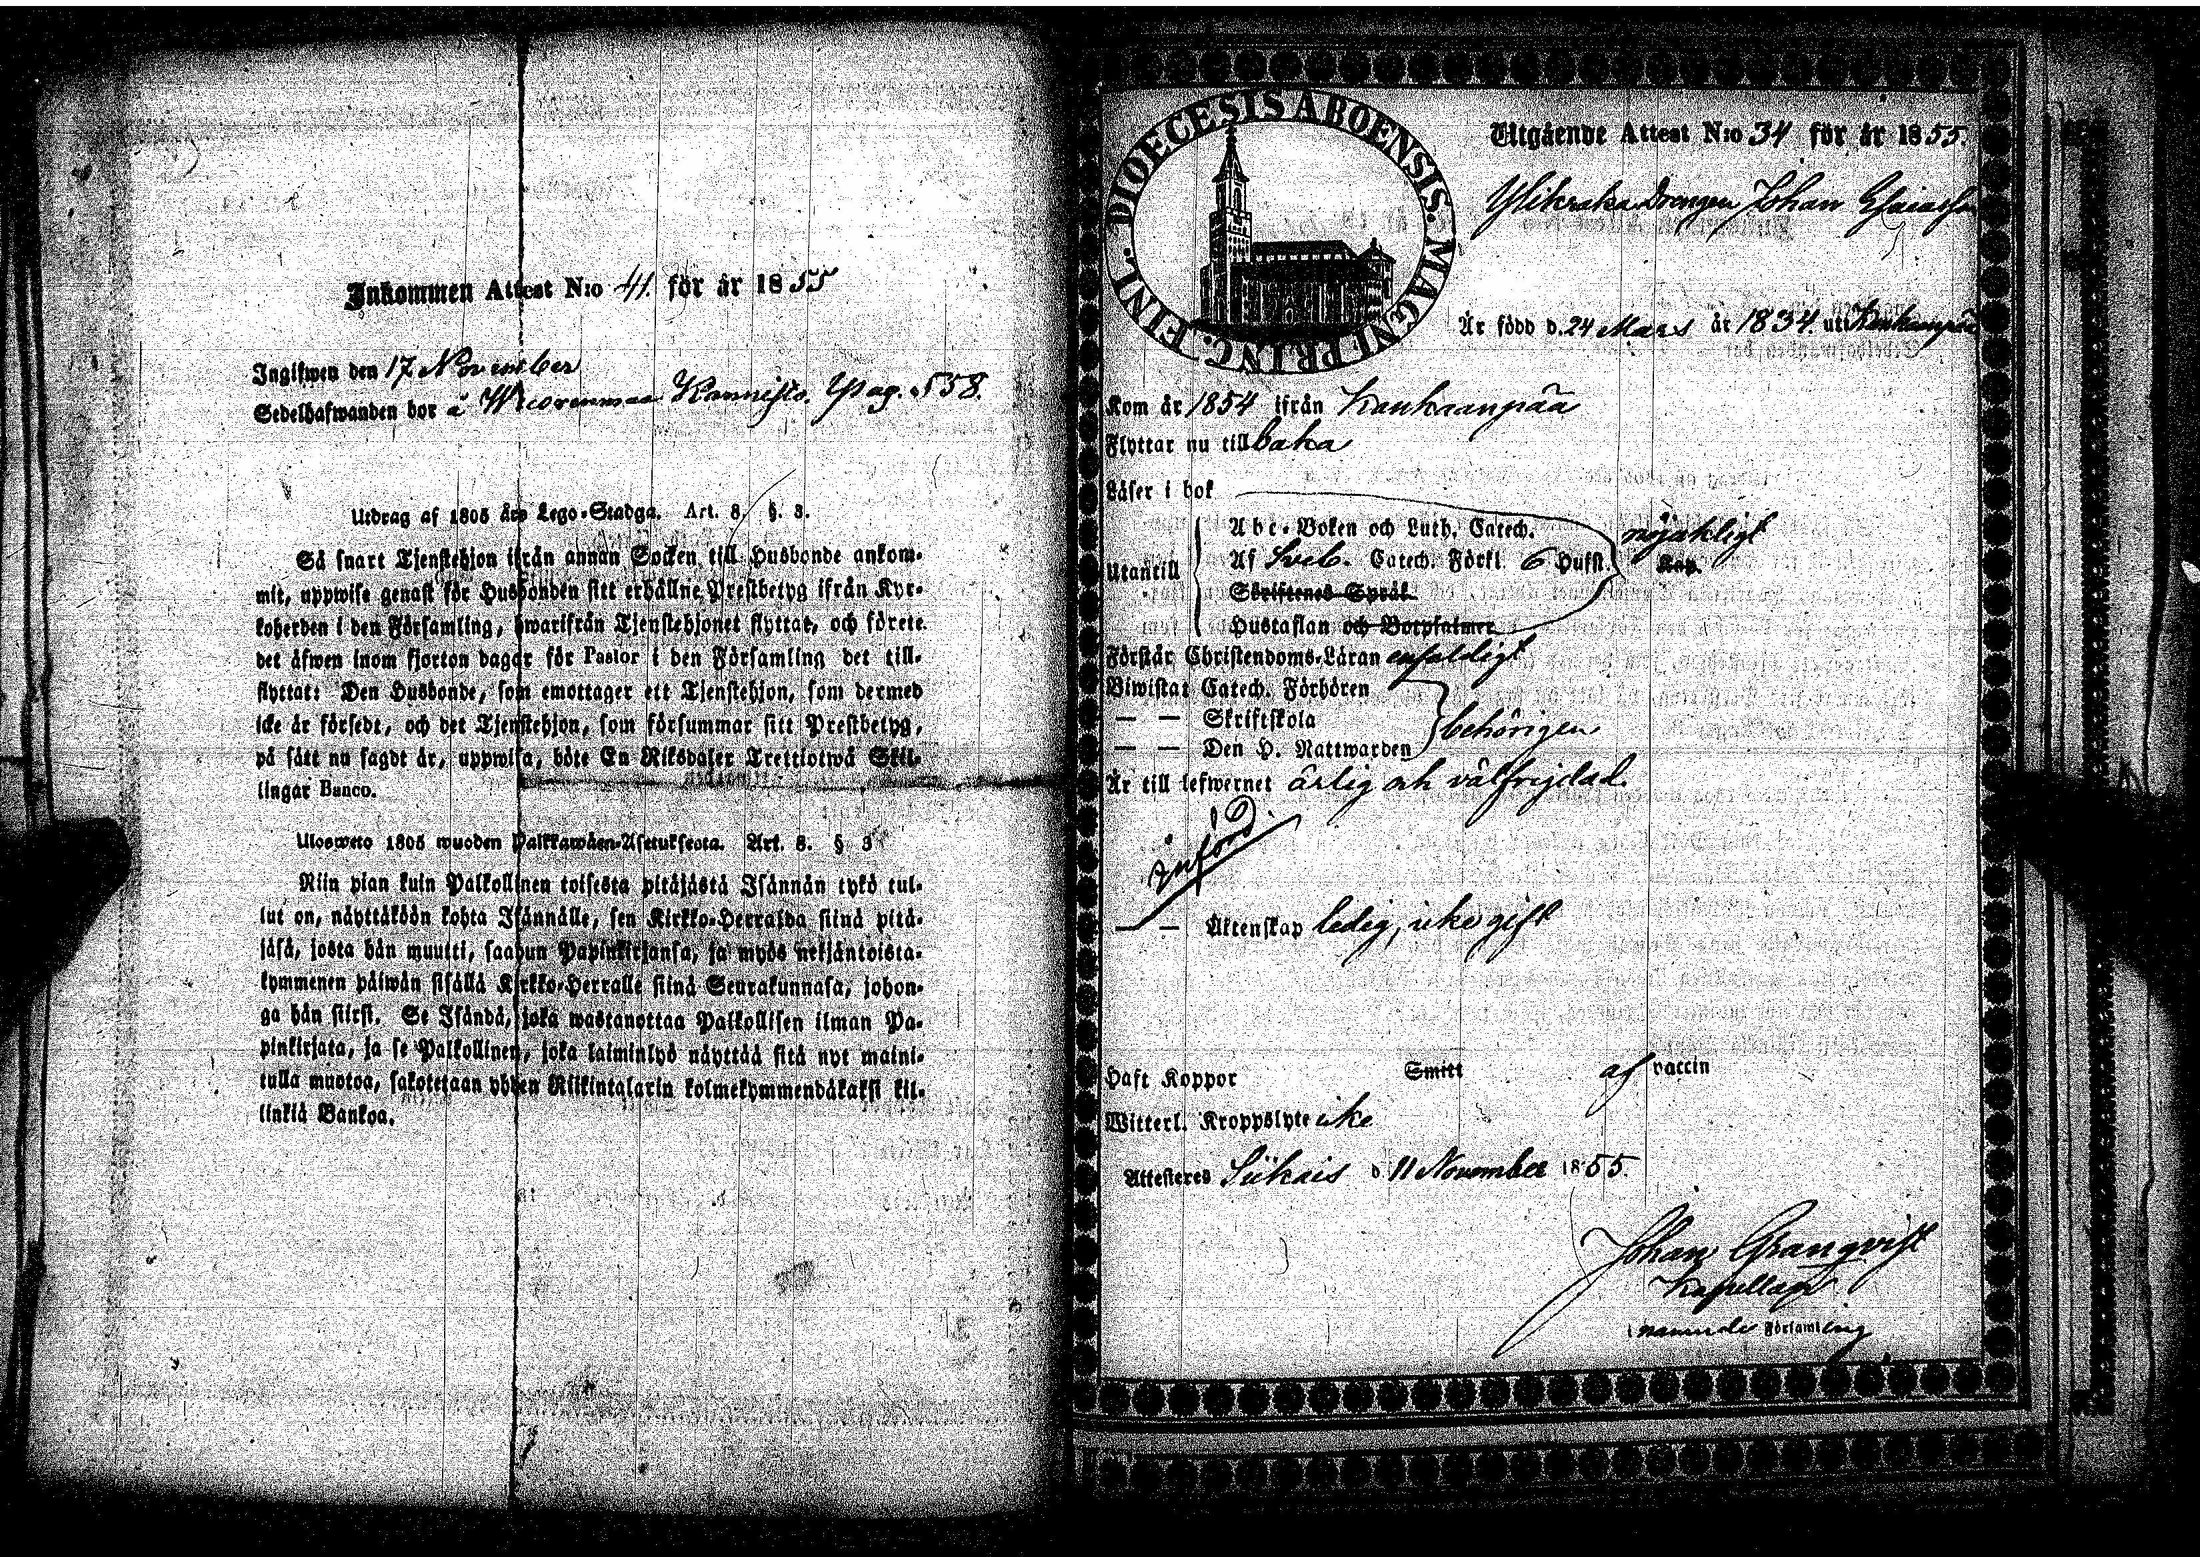 Inkommen Attest N:o 41. för år 1855
Ingifwen den 17 November
Sedelhafwanden bor å Kannisto. Pag. 558.
Utdrag af 1805 års Lego-Stadga. Art. 8. §. 3.
Så snart Tjenstehjon ifrån annan Socken till Husbonde ankom-
mit, uppwise genast för Husbonden sitt erhållne Prestbetyg ifrån Kyr-
koherden i den Församling, hwarifrån Tjenstehjonet flyttat, och förete
det äfwen inom fjorton dagar för Pastor i den Församling det till-
flyttat: Den Husbonde, som emottager ett Tjenstehjon, som dermed
icke är försedt, och det Tjenstehjon, som försummar sitt Prestbetyg,
på sätt nu sagdt är, uppwisa, böte En Riksdaler Trettiotwå Skil-
lingar Banco.
Ulosweto 1805 wuoden Palkkawäen-Asetuksesta. Art. 8. § 3
Niin pian kuin Palkollinen toisesta pitäjästä Isännän tykö tul-
lut on, näyttäköön kohta Isännälle, sen Kirkko-Herralda siinä pitä-
jäsä, josta hän muutti, saadun Papinkirjansa, ja myös neljäntoista-
kymmenen päiwän sisällä Kirkko-Herralle siinä Seurakunnasa, johon-
ga hän siirsi. Se Isändä, joka wastanottaa Palkollisen ilman Pa-
pinkirjata, ja se Palkollinen, joka laiminlyö näyttää sitä nyt maini-
tulla muotoa, sakotetaan yhden Riikintalarin kolmekymmendäkaksi kil-
linkiä Bankoa.
DIOECESIS ABOENSIS. MAGNI PRINC. FINL.
Utgående Attest N:o 34 för år 1855.
Drengen Johan
Är född d. 24 Mars år 1834. uti Kankaanpää
Kom år 1854 ifrån Kankaanpää
Flyttar nu tillbaka
Läser i bok
Abc-Boken och Luth. Catech. nöjaktligt
Utantill Af Sveb. Catech. Förkl. 6 Hufst. Kap.
Skriftenes Språk
Hustaflan och Botpsalmer
Förstår Christendoms-Läran enfaldigt
Biwistat Catech. Förhören
— — Skriftskola behörigen
— — Den H. Nattwarden
Är till lefwernet ärlig och välfrejdad.
införd
— — Äktenskap ledig, icke gift
Haft Koppor Smitt af vaccin
Witterl. Kroppslyte icke
Attesteres Siikais d. 11 November 1855.
Johan Granqvist
Kapellan
i nämnde Församling